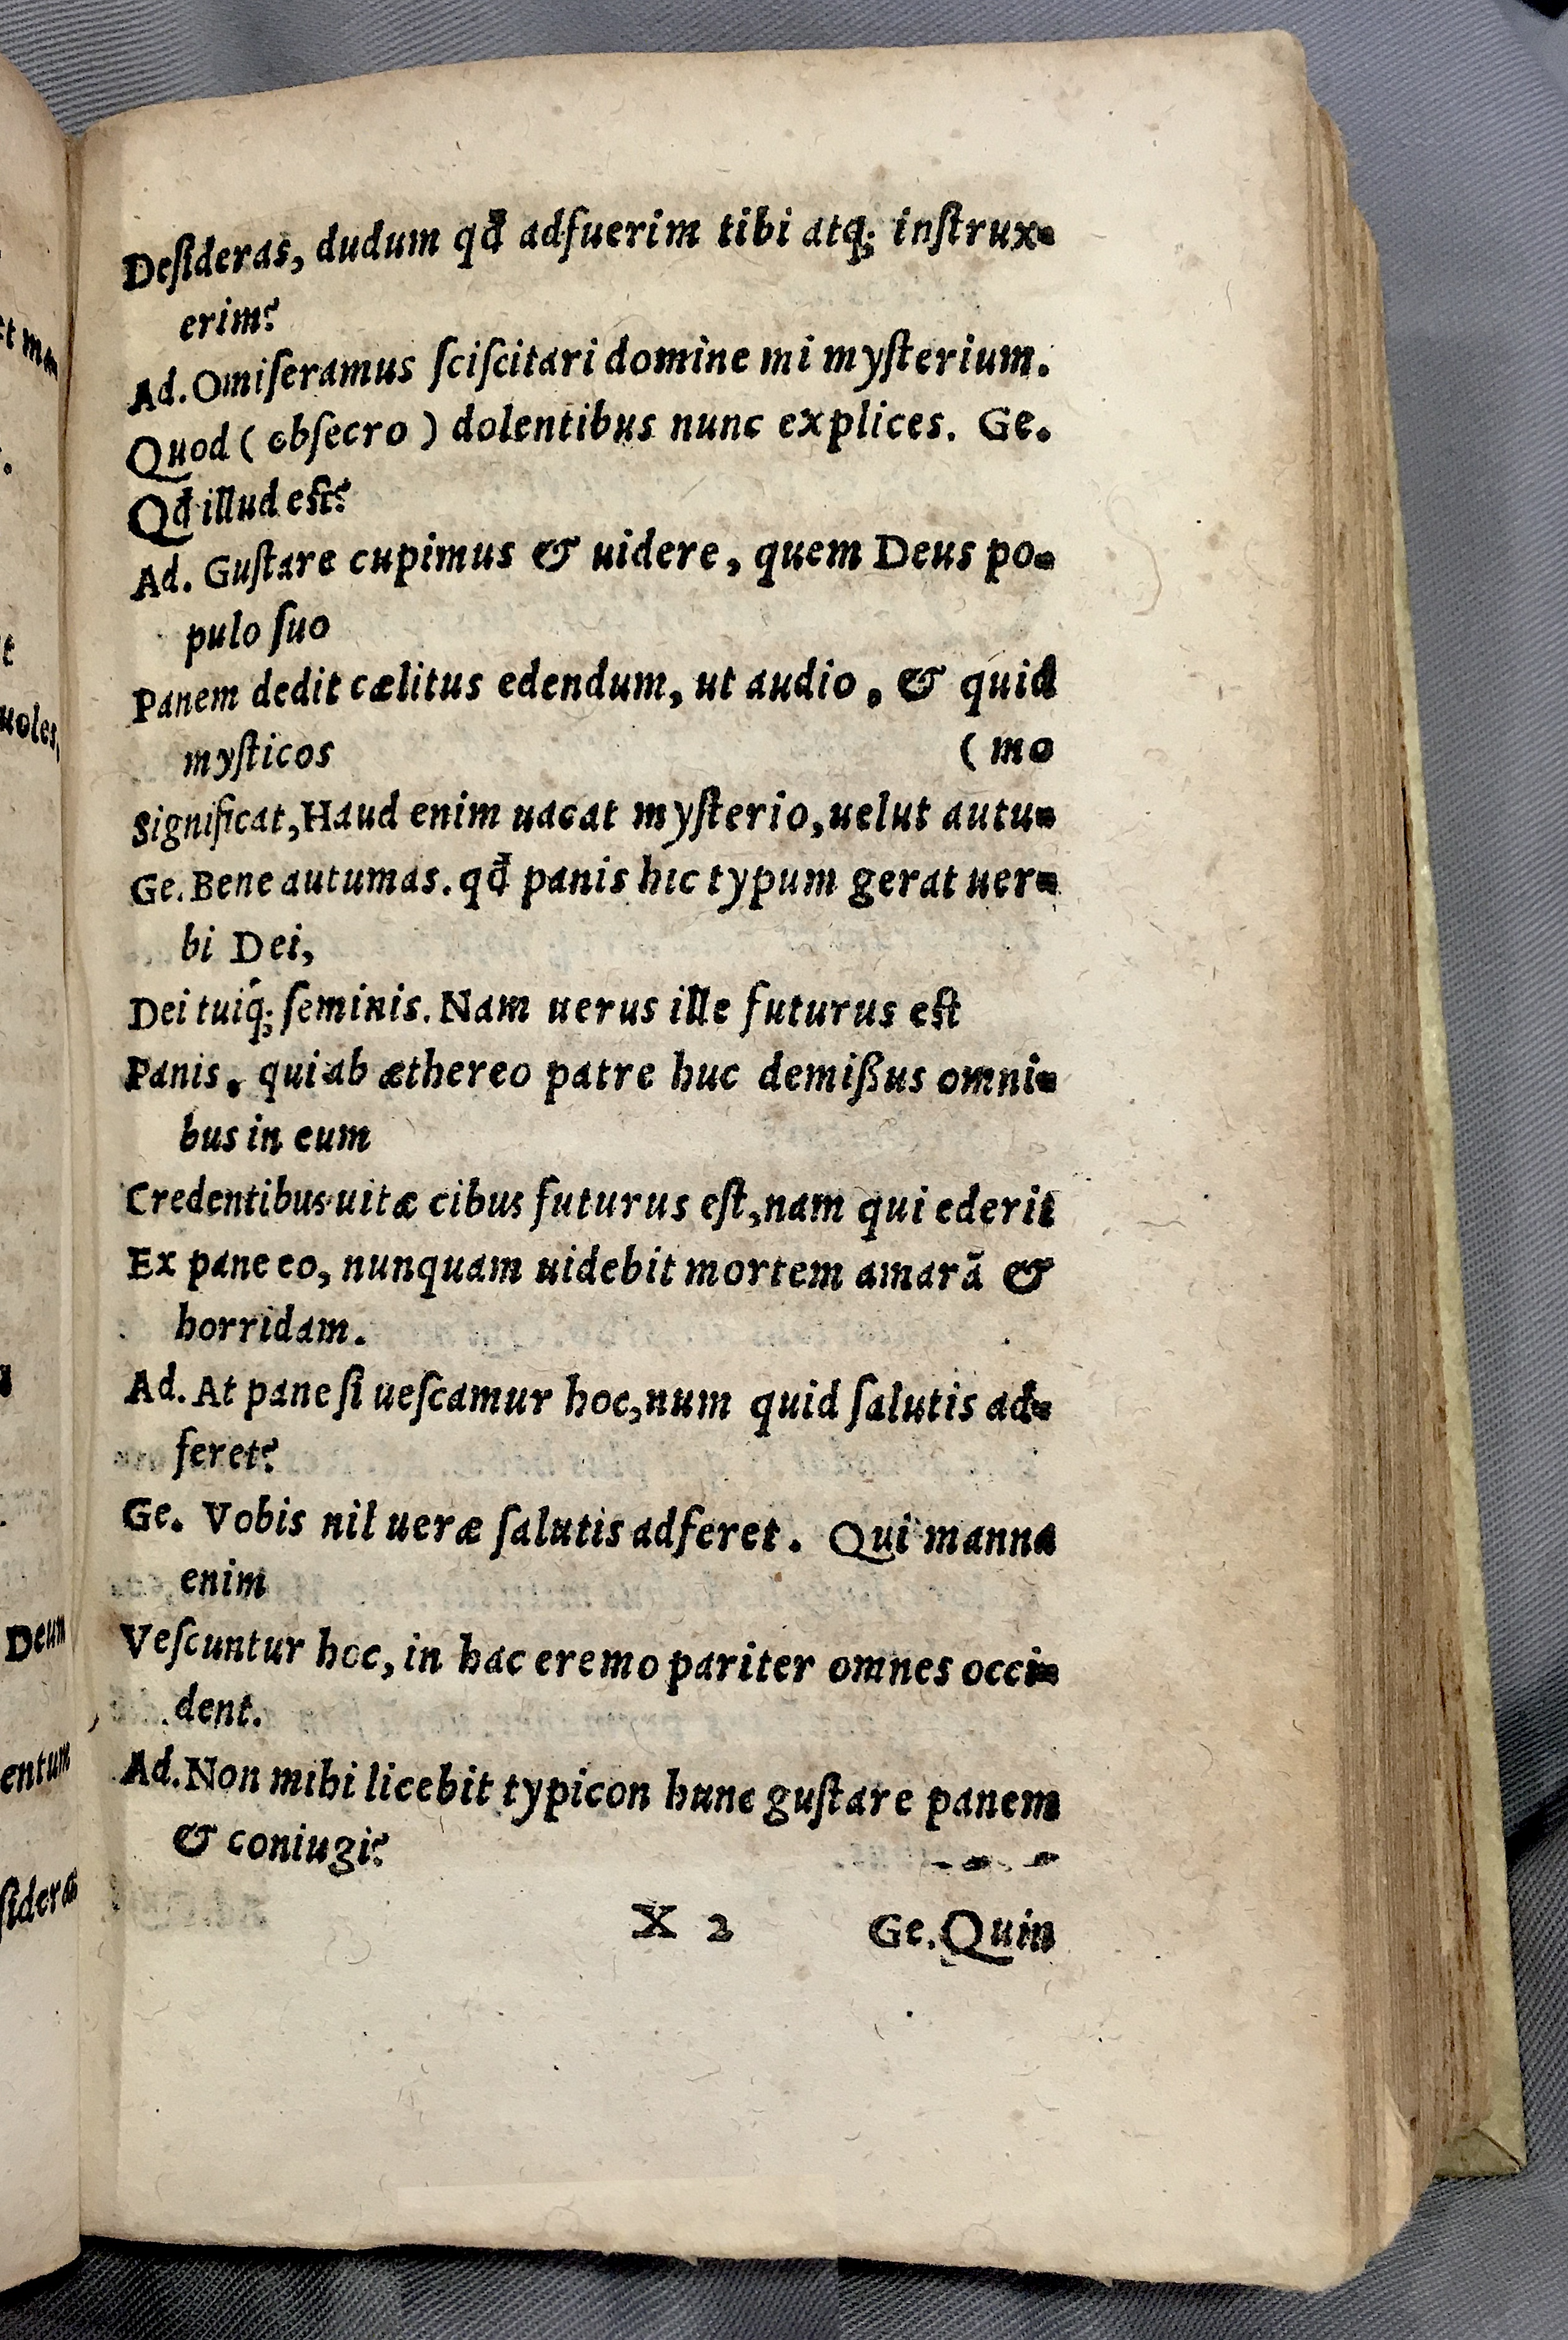 Desideras, dudum qđ adfuerim tibi atq; instrux-
erim?
Ad. Omiseramus sciscitari domine mi mysterium.
Quod ( obsecro ) dolentibus nunc explices. Ge.
Qđ illud est?
Ad. Gustare cupimus & uidere, quem Deus po-
pulo suo
Panem dedit cælitus edendum, ut audio, & quid
mysticos (mo
Significat, Haud enim uacat mysterio, uelut autu-
Ge. Bene autumas. qđ panis hic typum gerat uer-
bi Dei,
Dei tuiq́; seminis. Nam uerus ille futurus est
Panis, qui ab æthereo patre huc demißus omni-
bus in eum
Credentibus uitæ cibus futurus est, nam qui ederit
Ex pane eo, nunquam uidebit mortem amarã &
horridam.
Ad. At pane si uescamur hoc, num quid salutis ad-
feret?
Ge. Vobis nil ueræ salutis adferet. Qui manna
enim
Vescuntur hoc, in hac eremo pariter omnes occi-
dent.
Ad. Non mihi licebit typicon hunc gustare panem
& coniugi?
X 2 Ge. Quin